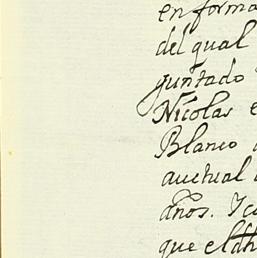 en forma
del qual
guntado
Nicolas
Blanco
auctual
años. Y
que el dh